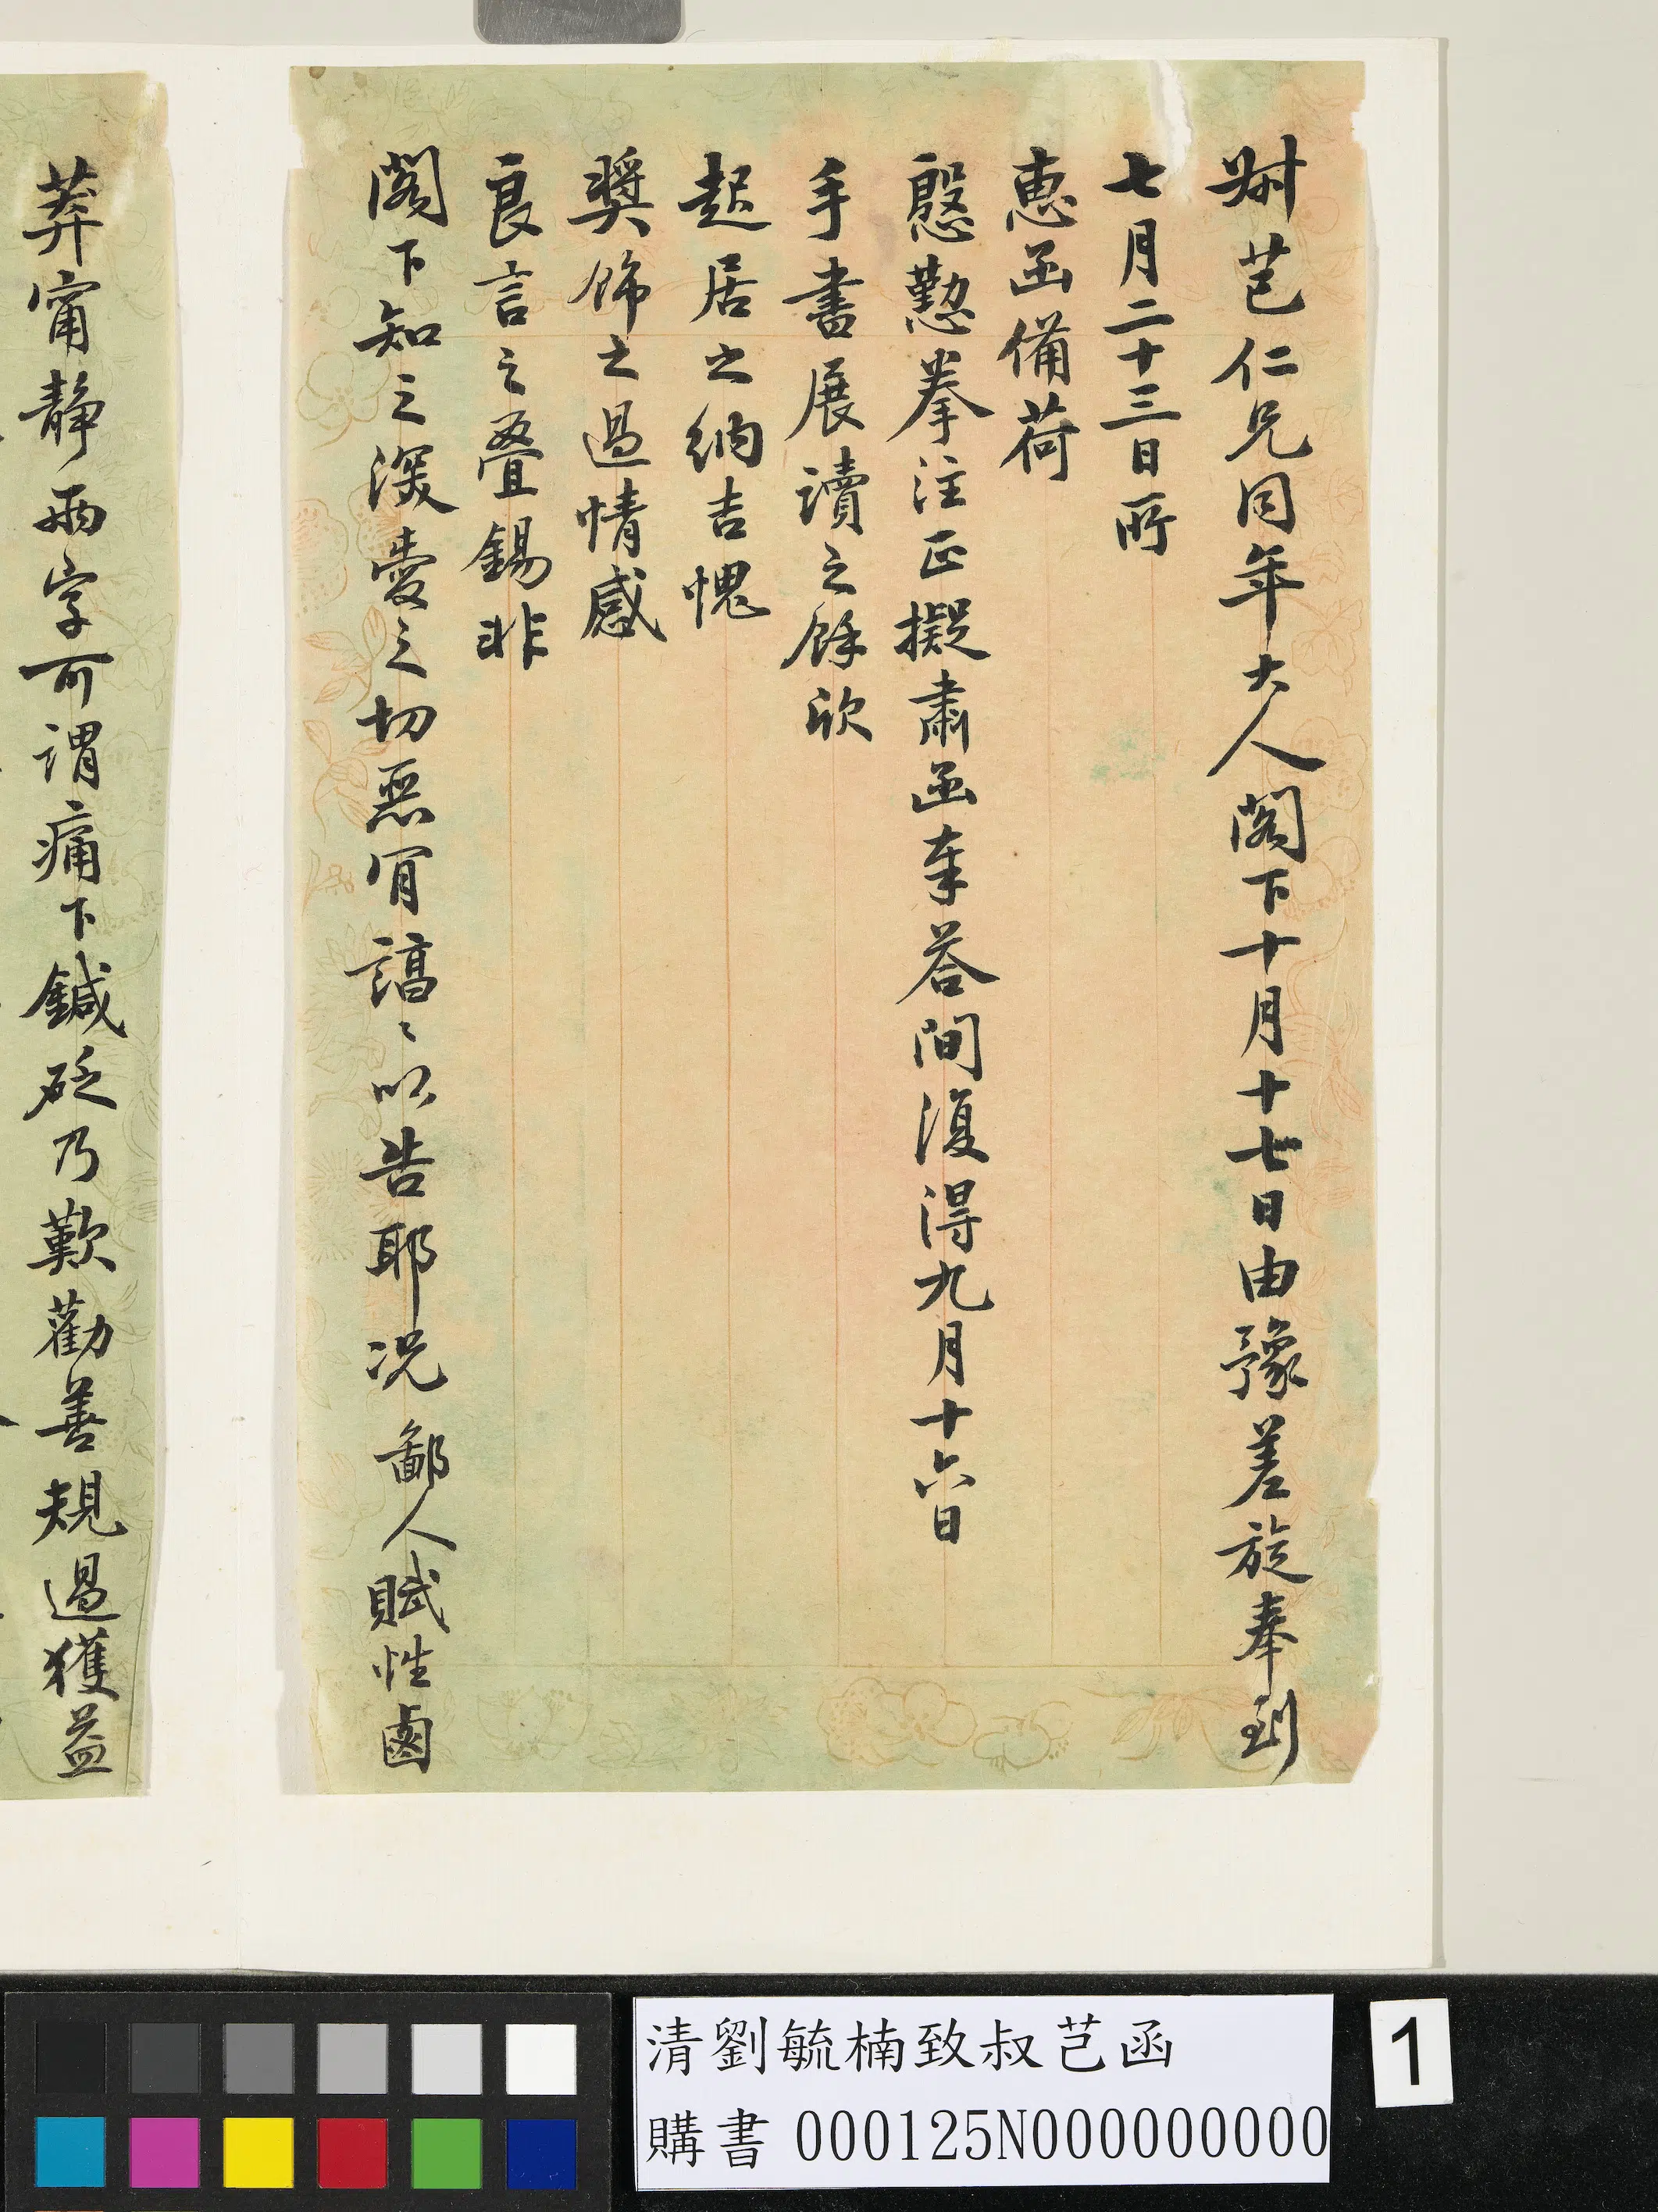 尗芑仁兄同年大人閣下十月十七日由豫差旋奉到
七月二十三日所
惠函備荷
慇懃拳注正擬肅函奉答間復得九月十六日
手書展讀之餘欣
起居之納吉愧
奬飾之過情感
良言之疊錫非
閣下知之深愛之切惡肎諄〻以告耶况鄙人賦性鹵
莽甯靜兩字可謂痛下鍼砭乃歎勸善規過獲益
清劉毓楠致叔芑函
購書 000125N000000000
1